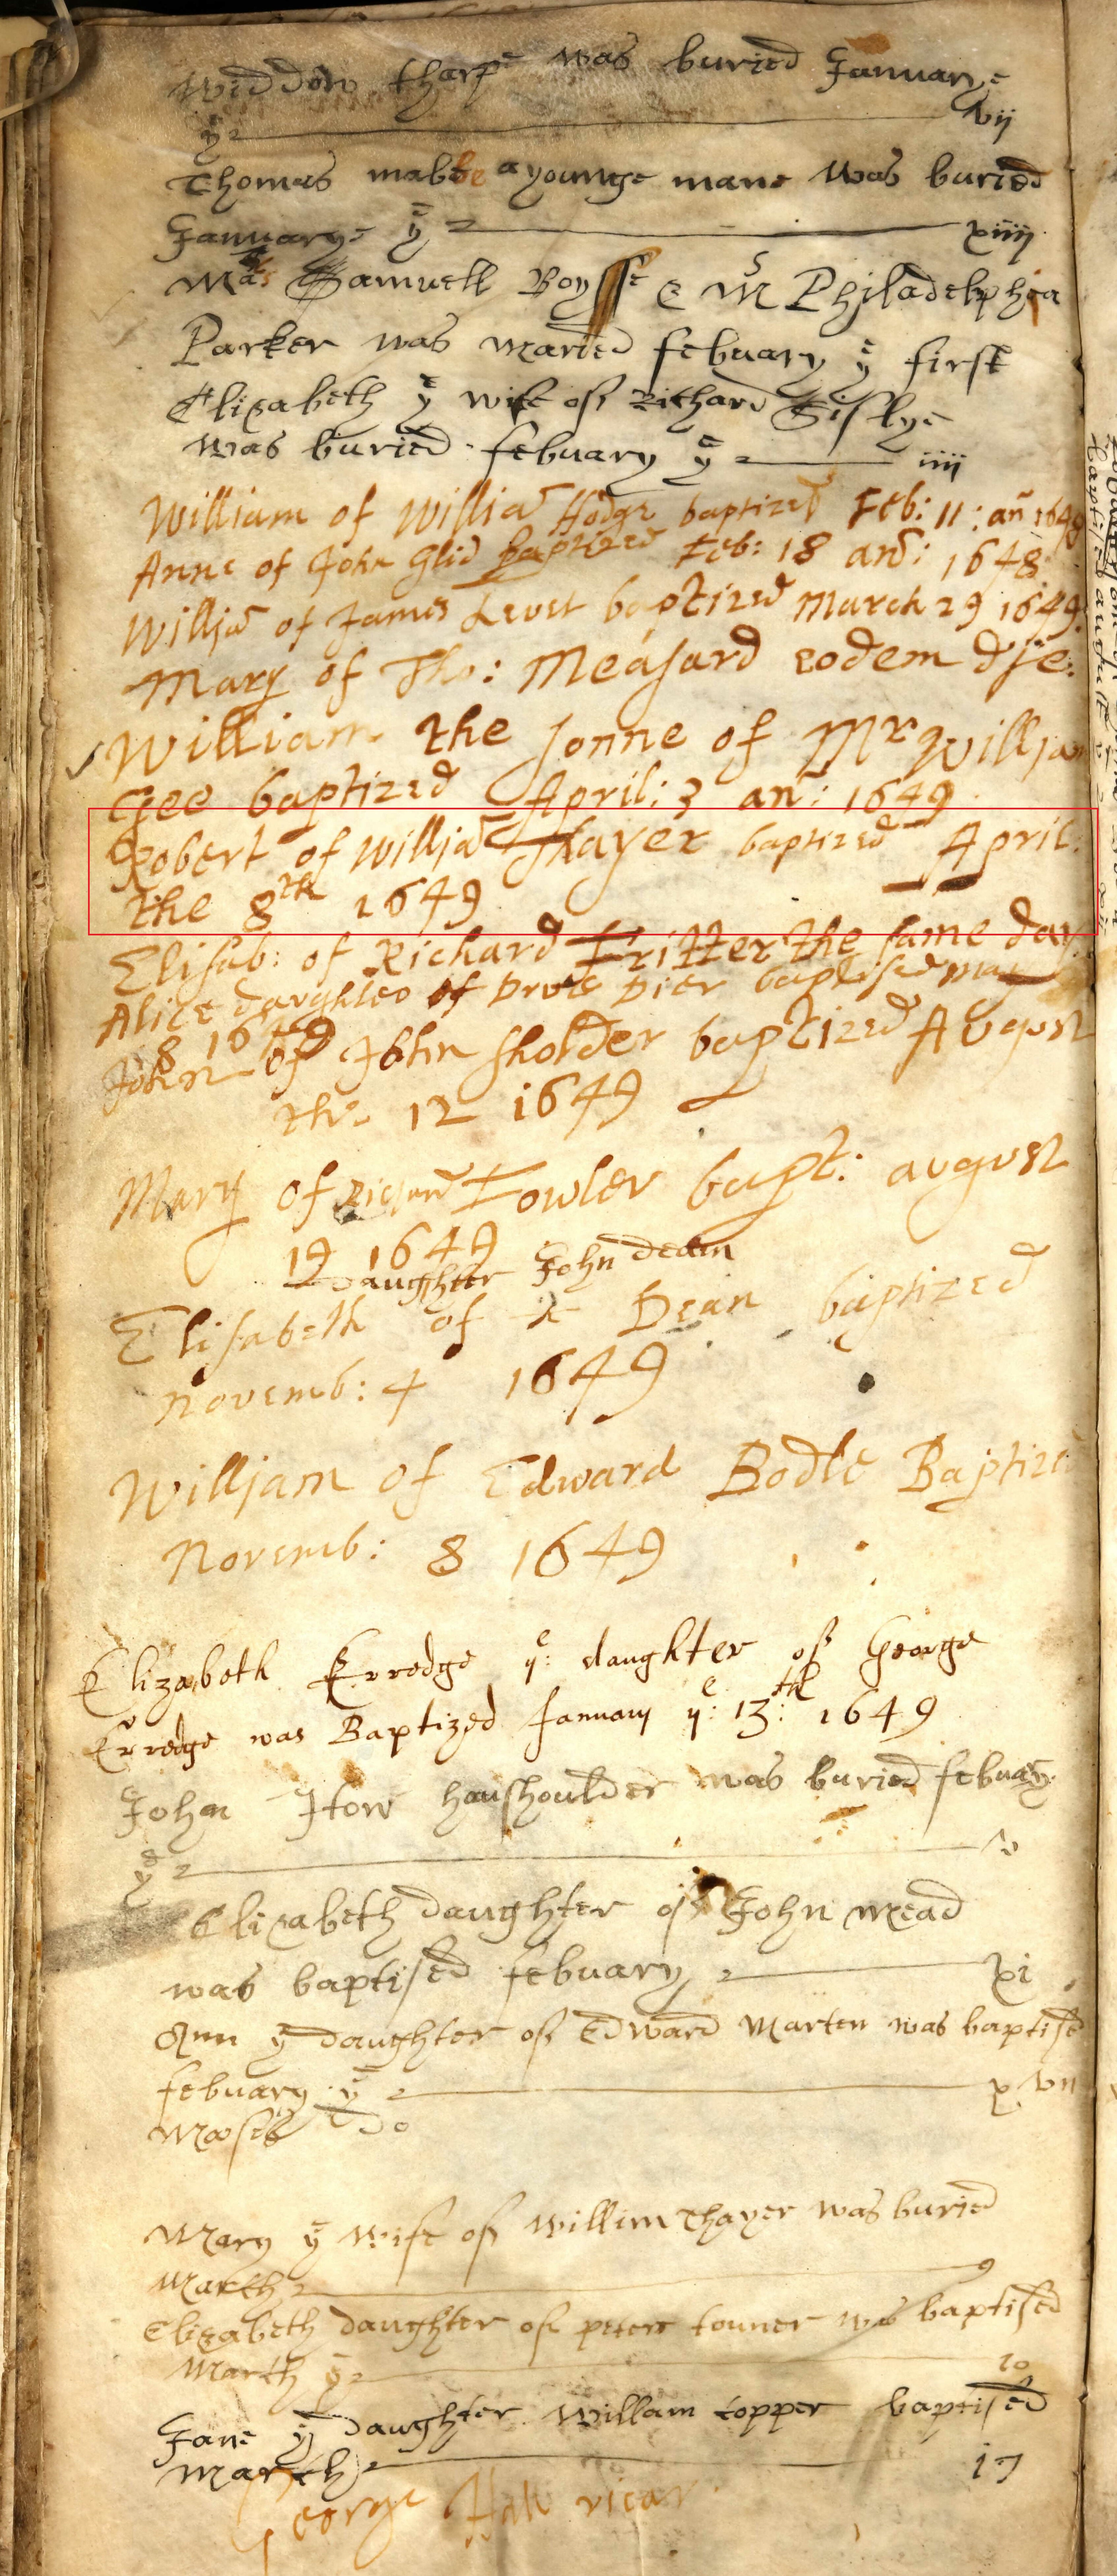 Widdow tharpe was buried Januarye
yᵉ vij
Thomas mabbe a younge mane was buried
Januarye yᵉ xiiij
Samuell Boysse & Mˢ Philadelphia
Parker was maried febuary yᵉ first
Elizabeth yᵉ wife of Richard Sislye
was buried febuary yᵉ iiij
William of Williã Hodge baptized Feb: 11: añ 1648
Anne of John Glid baptized Feb: 18 añ: 1648
Williã of James Levet baptized March 29 1649
Mary of Tho: Measard eodem die:
William the sonne of Mʳ William
Gee baptized April: 3 añ: 1649
Robert of Williã Thayer baptized April:
the 8ᵗʰ 1649
Elisab: of Richard Fritter the same day
Alice daughter of Drue Dier baptised may
8 1649
John of John Sholder baptized August
the 12 1649
Mary of Richard Fowler bapt: august
19 1649
Daughter John dean
Elisabeth of Dean baptized
Novemb: 4 1649
William of Edward Bodle Baptized
Novemb: 8 1649
Elizabeth Erredge yᵉ: daughter of George
Erredge was Baptized January yᵉ: 13ᵗʰ: 1649
John How houshoulder was buried febuary
yᵉ v
Elizabeth daughter of John mead
was baptised febuary xi
Ann yᵉ daughter of Edward Marten was baptised
febuary yᵉ xvii
Moses
Mary yᵉ wife of Willim Thayer was buried
March 9
Elizabeth daughter of peter tonner was baptised
March yᵉ 10
Jane yᵉ daughter Willam topper baptised
March 17
George Hall vicar